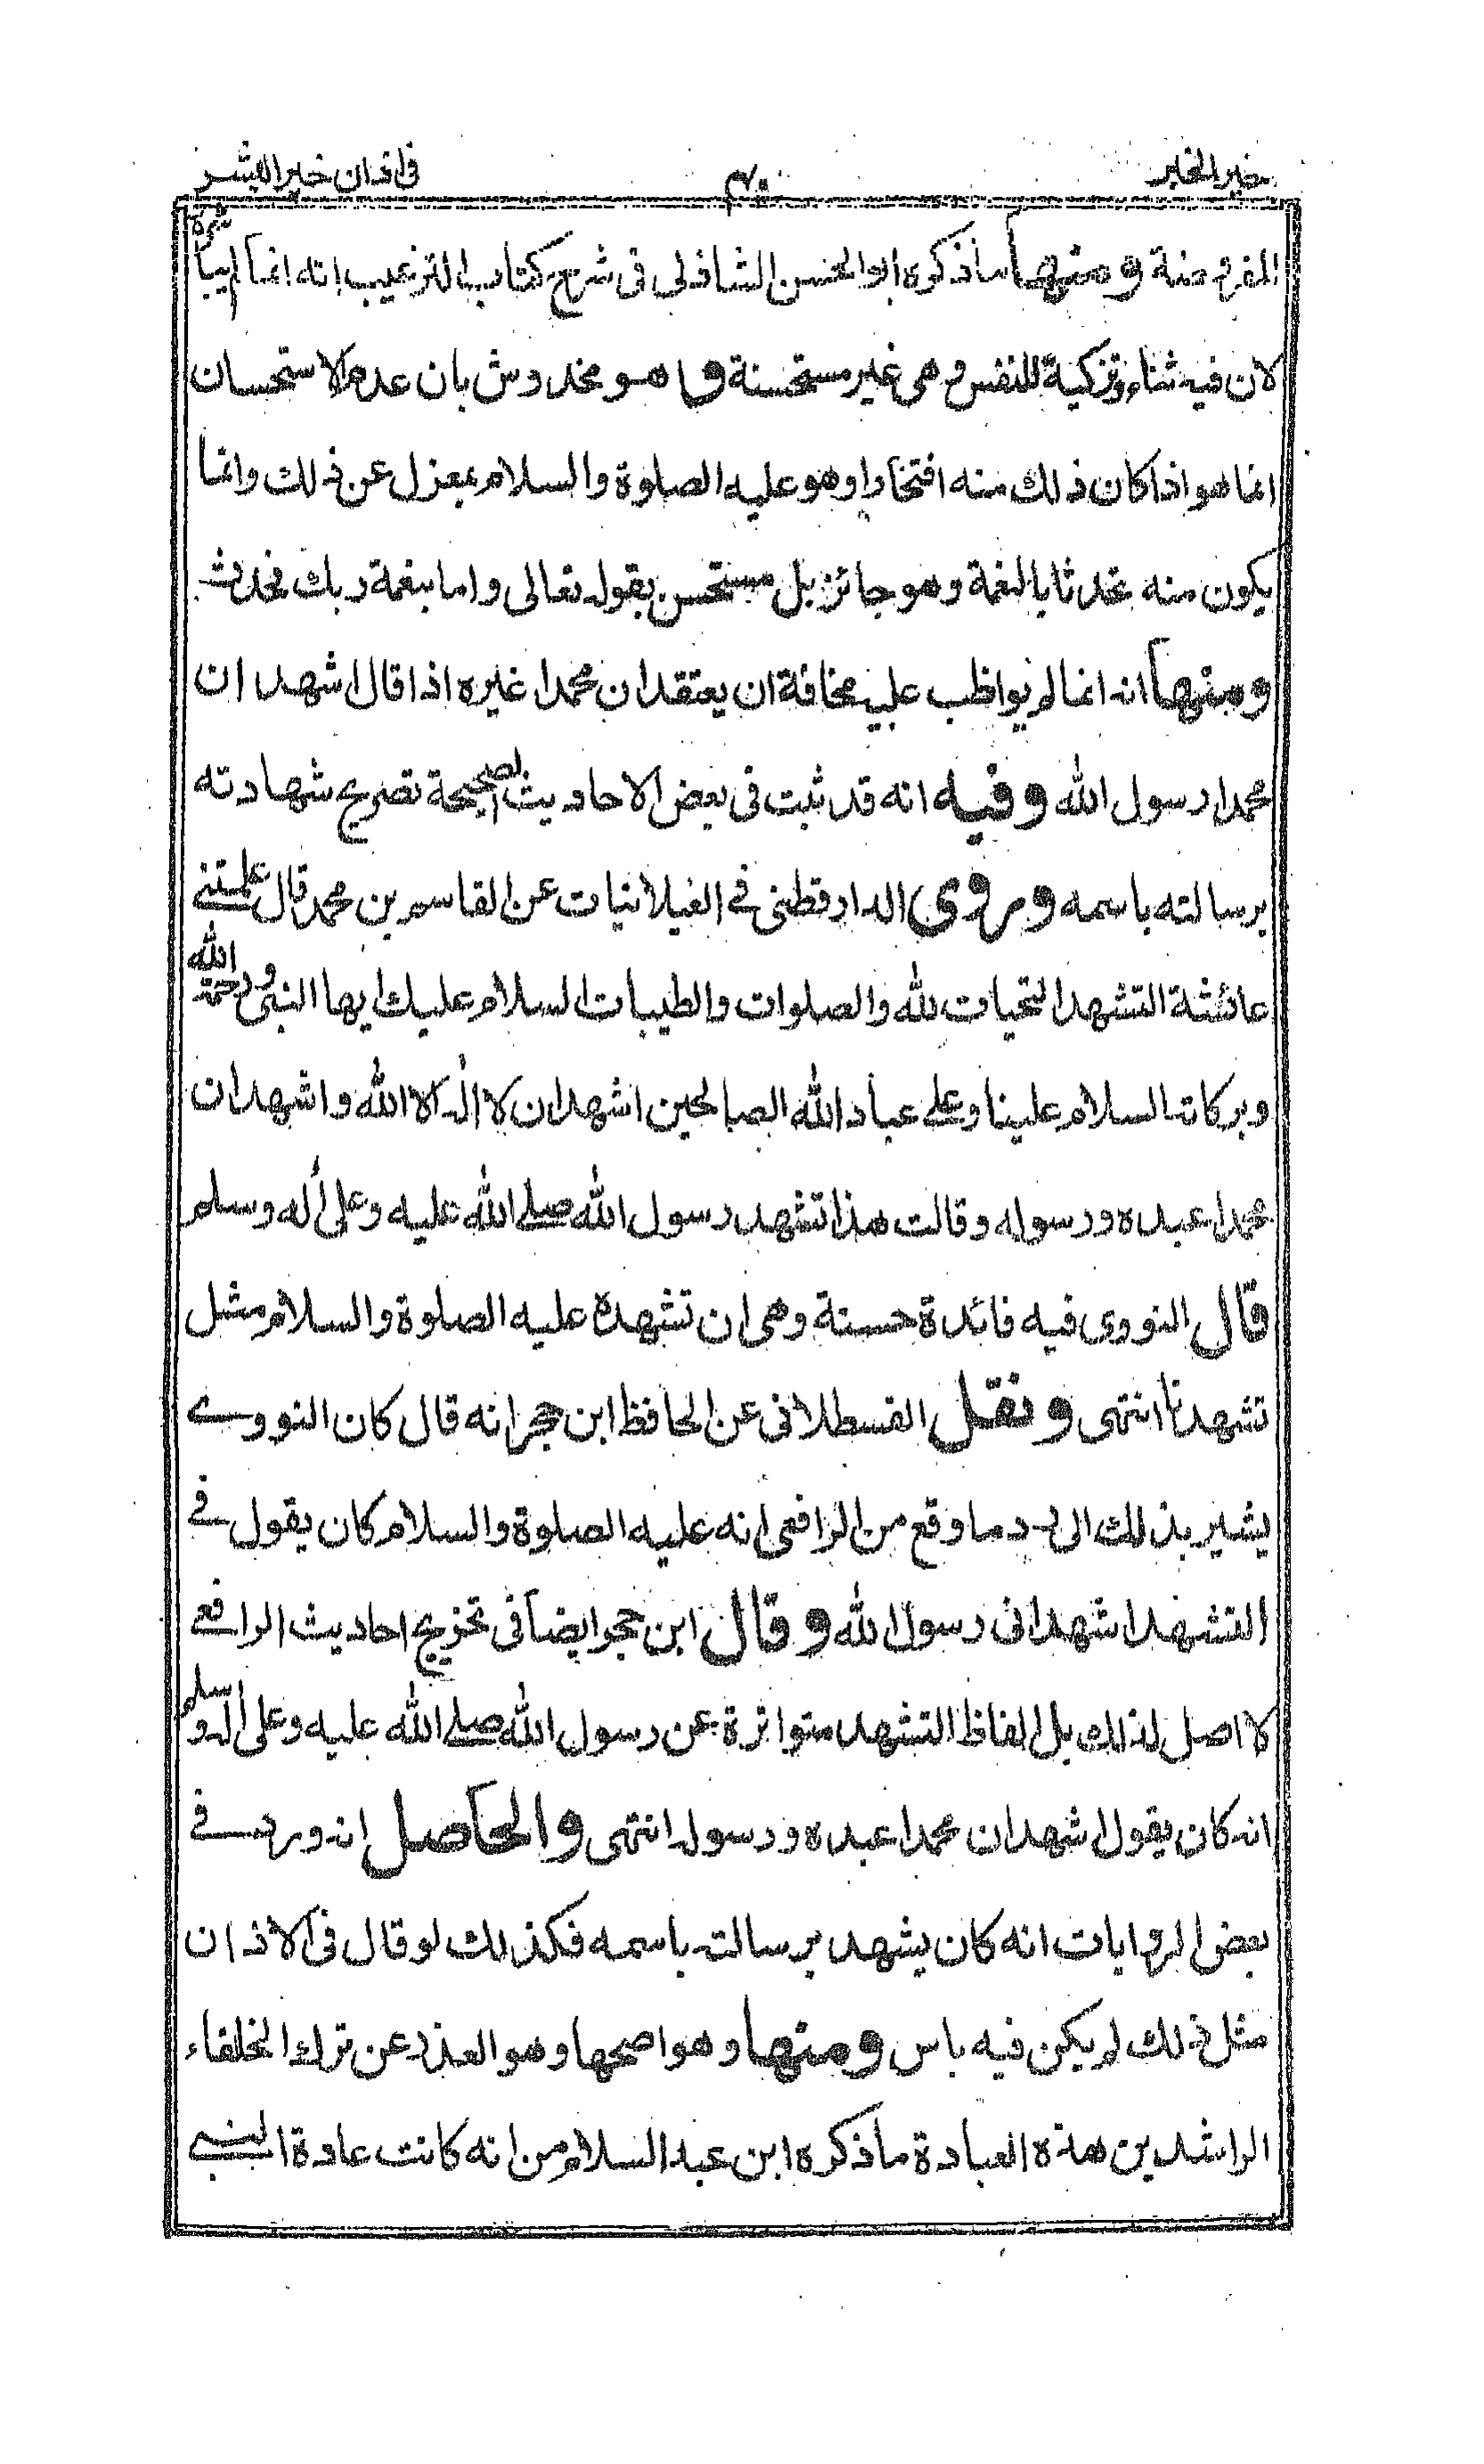 خير الخبر
٤٠
في اذان خير البشر
المفروضة ومنها ما ذكره ابو الحسن الشاذلى فى شرح كتاب الترغيب انه انما لم يباشره
لان فيه ثناء وتزكية للنفس وهى غير مستحسنة وهو مخدوش بان عدم الاستحسان
انما هو اذا كان ذلك منه افتخارا وهو عليه الصلوة والسلام بمعزل عن ذلك وانما
يكون منه تحدثا بالنعمة وهو جائز بل مستحسن بقوله تعالى واما بنعمة ربك فحدث
ومنها انه انما لم يواظب عليه مخافة ان يعتقد ان محمدا غيره اذا قال اشهد ان
محمدا رسول الله وفيه انه قد ثبت فى بعض الاحاديث الصحيحة تصريح شهادته
برسالته باسمه وروى الدارقطنى فے الغيلانيات عن القاسم بن محمد قال علمتنے
عائشة التشهد التحيات لله والصلوات والطيبات السلام عليك ايها النبى ورحمة الله
وبركاته السلام علينا وعلے عباد الله الصالحين اشهد ان لا اله الا الله واشهد ان
محمدا عبده ورسوله وقالت هذا تشهد رسول الله صلے الله عليه وعلى اٰله وسلم
قال النووى فيه فائدة حسنة وهى ان تشهده عليه الصلوة والسلام مثل
تشهدنا انتهى ونقل القسطلانى عن الحافظ ابن حجر انه قال كان النووے
يشير بذلك الى رد ما وقع من الرافعى انه عليه الصلوة والسلام كان يقول فے
التشهد اشهد انى رسول الله وقال ابن حجر ايضا فى تخريج احاديث الرافعے
لا اصل لذلك بل الفاظ التشهد متواترة عن رسول الله صلے الله عليه وعلى اٰله وسلم
انه كان يقول اشهد ان محمدا عبده ورسوله انتهى والحاصل انه ورد فے
بعض الروايات انه كان يشهد برسالته باسمه فكذلك لو قال فى الاذان
مثل ذلك لم يكن فيه باس ومنها وهو اصحها وهو العذر عن ترك الخلفاء
الراشدين هذه العبادة ما ذكره ابن عبد السلام من انه كانت عادة النبے